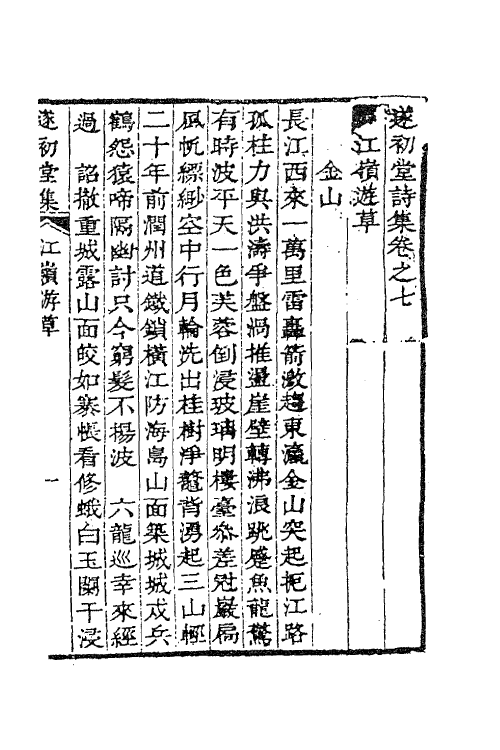 遂初堂詩集卷之七
江嶺遊草
金山
長江西來一萬里雷轟箭激趨東瀛金山突起扼江路
孤柱力與洪濤爭盤渦推盪崖壁轉沸浪跳蹙魚龍驚
有時波平天一色芙蓉倒浸玻璃明樓臺叅差冠巖扃
風帆縹緲空中行月輪洗出桂樹淨鼇背湧起三山輕
二十年前潤州道鐵鎖橫江防海島山面築城城戍兵
鶴怨猿啼隔幽討只今窮髮不揚波　六龍巡幸來經
過　詔撤重城露山面皎如褰帳看修蛾白玉闌干浸
遂初堂集　江嶺游草　一